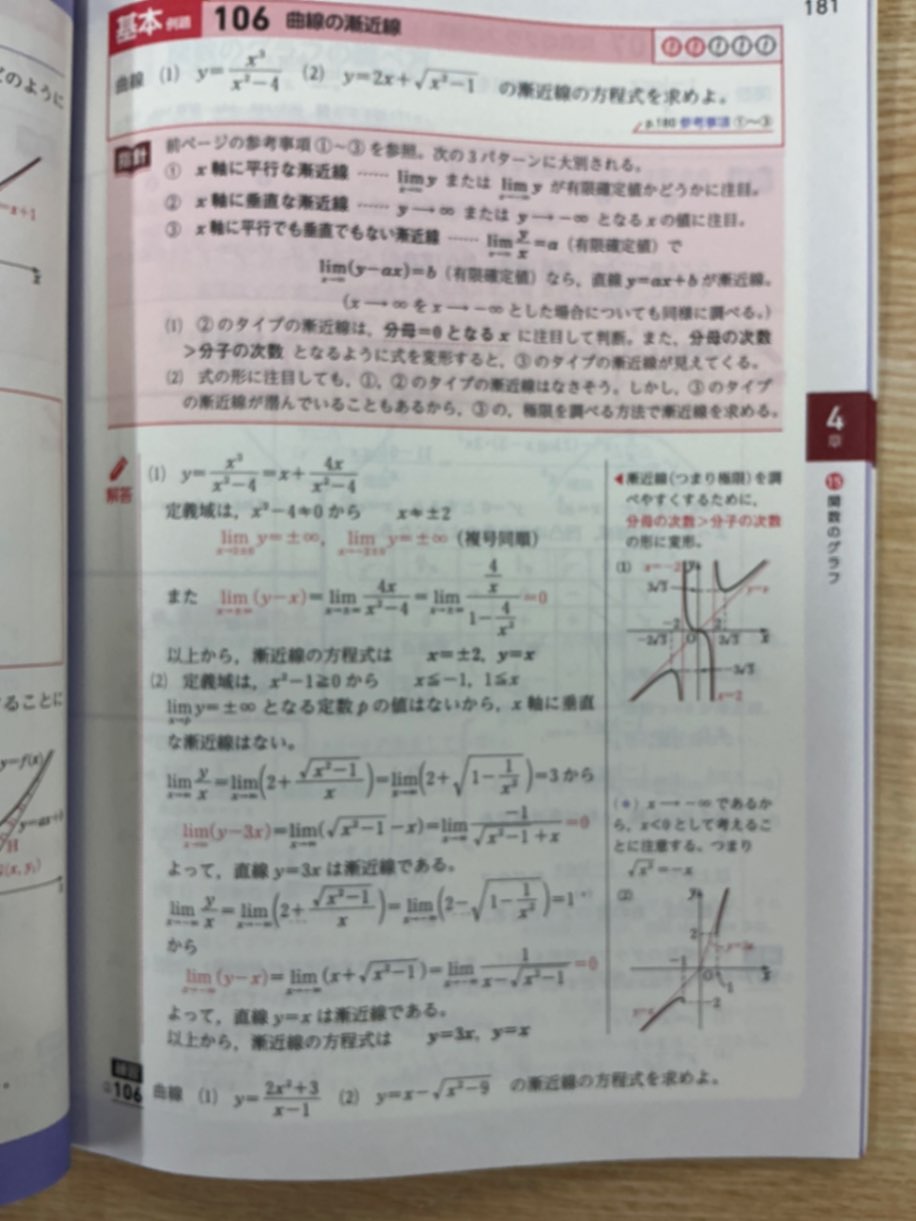 181
基本 例題 106 曲線の漸近線
曲線 (1) y=x³/(x²−4) (2) y=2x+√(x²−1) の漸近線の方程式を求めよ。
p.180 参考事項 ①〜③
指針 前ページの参考事項①〜③を参照。次の3パターンに大別される。
① x軸に平行な漸近線 …… lim[x→∞] y または lim[x→−∞] y が有限確定値かどうかに注目。
② x軸に垂直な漸近線 …… y→∞ または y→−∞ となるxの値に注目。
③ x軸に平行でも垂直でもない漸近線 …… lim[x→∞] y/x=a (有限確定値) で
lim[x→∞](y−ax)=b (有限確定値) なら，直線 y=ax+b が漸近線。
(x→∞ を x→−∞ とした場合についても同様に調べる。)
(1) ②のタイプの漸近線は，分母=0となるxに注目して判断。また，分母の次数
>分子の次数 となるように式を変形すると，③のタイプの漸近線が見えてくる。
(2) 式の形に注目しても，①，②のタイプの漸近線はなさそう。しかし，③のタイプ
の漸近線が潜んでいることもあるから，③の，極限を調べる方法で漸近線を求める。
解答
(1) y=x³/(x²−4)=x+4x/(x²−4)
定義域は，x²−4≠0 から x≠±2
lim[x→2±0] y=±∞, lim[x→−2±0] y=±∞ (複号同順)
また lim[x→±∞](y−x)=lim[x→±∞] 4x/(x²−4)=lim[x→±∞] (4/x)/(1−4/x²)=0
以上から，漸近線の方程式は x=±2, y=x
(2) 定義域は，x²−1≧0 から x≦−1, 1≦x
lim[x→p] y=±∞ となる定数pの値はないから，x軸に垂直
な漸近線はない。
lim[x→∞] y/x=lim[x→∞](2+√(x²−1)/x)=lim[x→∞](2+√(1−1/x²))=3 から
lim[x→∞](y−3x)=lim[x→∞](√(x²−1)−x)=lim[x→∞] −1/(√(x²−1)+x)=0
よって，直線 y=3x は漸近線である。
lim[x→−∞] y/x=lim[x→−∞](2+√(x²−1)/x)=lim[x→−∞](2−√(1−1/x²))=1
から
lim[x→−∞](y−x)=lim[x→−∞](x+√(x²−1))=lim[x→−∞] 1/(x−√(x²−1))=0
よって，直線 y=x は漸近線である。
以上から，漸近線の方程式は y=3x, y=x
◀漸近線(つまり極限)を調
べやすくするために，
分母の次数>分子の次数
の形に変形。
(1) x=−2 y
3√3 y=x
−2 2
−2√3 O 2√3 x
−3√3
x=2
(*) x→−∞ であるか
ら，x<0として考えるこ
とに注意する。つまり
√x²=−x
(2) y
2 y=3x
−1 O 1 x
y=x −2
練習 106 曲線 (1) y=(2x²+3)/(x−1) (2) y=x−√(x²−9) の漸近線の方程式を求めよ。
4
章
⑮
関数のグラフ
のように
=x+1
x
ることに
y=f(x)
y=ax+b
H
(x, y₁)
x